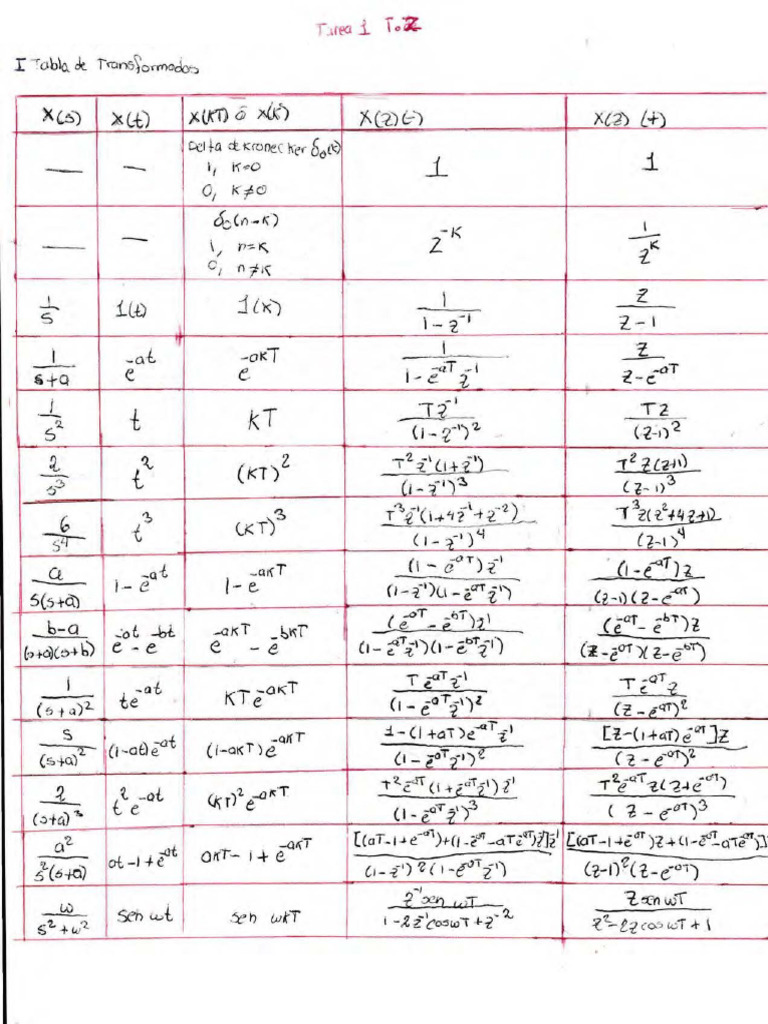 Tarea 1 T.Z
I Tabla de Transformadas
X(s) X(t) X(KT) ó X(K) X(z)(-) X(z) (+)
— — Delta de Kronecker δ₀(t) 1, K=0 0, K≠0 1 1
— — δ₀(n-K) 1, n=K 0, n≠K z^-K 1/z^K
1/s 1(t) 1(K) 1/(1-z^-1) z/(z-1)
1/(s+a) e^-at e^-aKT 1/(1-e^-aT z^-1) z/(z-e^-aT)
1/s^2 t KT Tz^-1/(1-z^-1)^2 Tz/(z-1)^2
2/s^3 t^2 (KT)^2 T^2z^-1(1+z^-1)/(1-z^-1)^3 T^2z(z+1)/(z-1)^3
6/s^4 t^3 (KT)^3 T^3z^-1(1+4z^-1+z^-2)/(1-z^-1)^4 T^3z(z^2+4z+1)/(z-1)^4
a/s(s+a) 1-e^-at 1-e^-aKT (1-e^-aT)z^-1/(1-z^-1)(1-e^-aT z^-1) (1-e^-aT)z/(z-1)(z-e^-aT)
b-a/(s+a)(s+b) e^-at - e^-bt e^-aKT - e^-bKT (e^-aT - e^-bT)z^-1/(1-e^-aT z^-1)(1-e^-bT z^-1) (e^-aT - e^-bT)z/(z-e^-aT)(z-e^-bT)
1/(s+a)^2 te^-at KTe^-aKT Te^-aT z^-1/(1-e^-aT z^-1)^2 Te^-aT z/(z-e^-aT)^2
s/(s+a)^2 (1-at)e^-at (1-aKT)e^-aKT 1-(1+aT)e^-aT z^-1/(1-e^-aT z^-1)^2 [z-(1+aT)e^-aT]z/(z-e^-aT)^2
2/(s+a)^3 t^2e^-at (KT)^2e^-aKT T^2e^-aT(1+e^-aT z^-1)z^-1/(1-e^-aT z^-1)^3 T^2e^-aT z(z+e^-aT)/(z-e^-aT)^3
a^2/s^2(s+a) at-1+e^-at aKT-1+e^-aKT [(aT-1+e^-aT)+(1-e^-aT-aTe^-aT)z^-1]z^-1/(1-z^-1)^2(1-e^-aT z^-1) [(aT-1+e^-aT)z+(1-e^-aT-aTe^-aT)]/(z-1)^2(z-e^-aT)
w/(s^2+w^2) sen wt sen wKT z^-1 sen wT/(1-2z^-1 cos wT+z^-2) z sen wT/(z^2-2z cos wT+1)